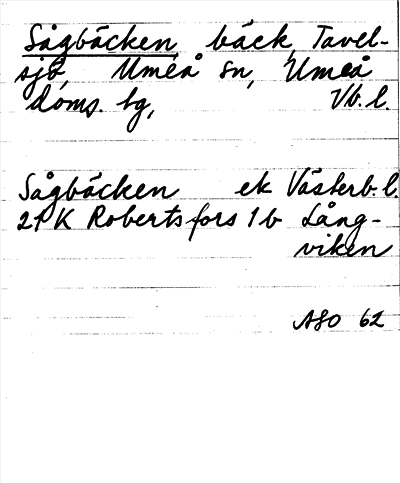 Sågbäcken, bäck, Tavel-
sjö, Umeå sn, Umeå
doms. tg, Vb. l.
Sågbäcken ek Västerb. l.
21 K Robertsfors 1 b Lång-
viken
ASO 62